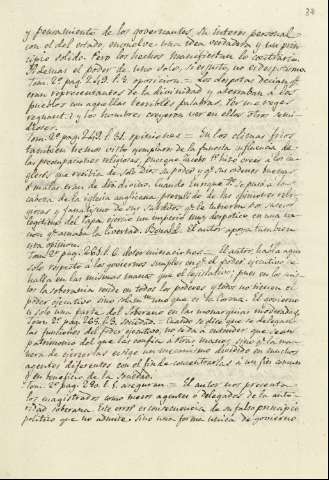 38
y pensamiento de los governantes. Su interes personal
con el del estado envuelve una idea verdadera y un prin-
cipio solido. Pero los hechos manifiestan lo contrario.
Ademas el poder de uno solo, si es justo, no es despotismo.
Tom. 2º pag. 249. l. 2. oposicion = Los despotas decian q.e
eran representantes de la divinidad y aterraban a los
pueblos con aquellas terribles palabras: Per me reges
regnant: y los hombres creyeron ver en ellos otros semi-
dioses.
Tom. 2º pag. 248. l. 21. opiniones = En los climas frios
tambien hemos visto exemplares de la funesta influencia de
las preocupaciones religiosas, puesque Jacobo 1º hizo creer a los in-
gleses que recibia de solo Dios su poder y q.e sus ordenes buenas
o malas eran de dro divino. Cuando Enrique 8º se puso a la ca-
beza de la iglesia anglicana prevalido de las opiniones reli-
giosas y fanatismo de sus subditos, él y los suyos
legitimos del Papa ejercio un imperio muy despotico en una na-
cion q.e amaba la libertad. El autor apoya tambien
esta opinion.
Tom. 2º pag. 265. l. 6. determinaciones = El autor, habla aqui
solo respecto a los goviernos simples en q.e el poder ejecutivo se
halla en las mismas manos que el legislativo; pues en los mix-
tos la soberania reside en todos los poderes y todo no tienen el
poder ejecutivo, sino solam.te uno que es la Corona. El govierno
es solo una parte del Soberano en las monarquias moderadas.
Tom. 2º pag. 265. l. 3. unidad = Cuando se dice que se delegan
las funciones del poder ejecutivo no se da a entender que sean
patrimonio del que las confia a otras manos, sino q.e la ma-
nera de ejercerlas exige un mecanismo dividido en muchos
agentes diferentes con el fin de concentrarlas a un fin comun
en beneficio de la Sociedad.
Tom. 2º pag. 290. l. 8. aseguran = El autor nos presenta
los magistrados como meros agentes o delegados de la auto-
ridad soberana. Este error es consecuencia de su falso principio
politico que no admite sino una forma unica de govierno